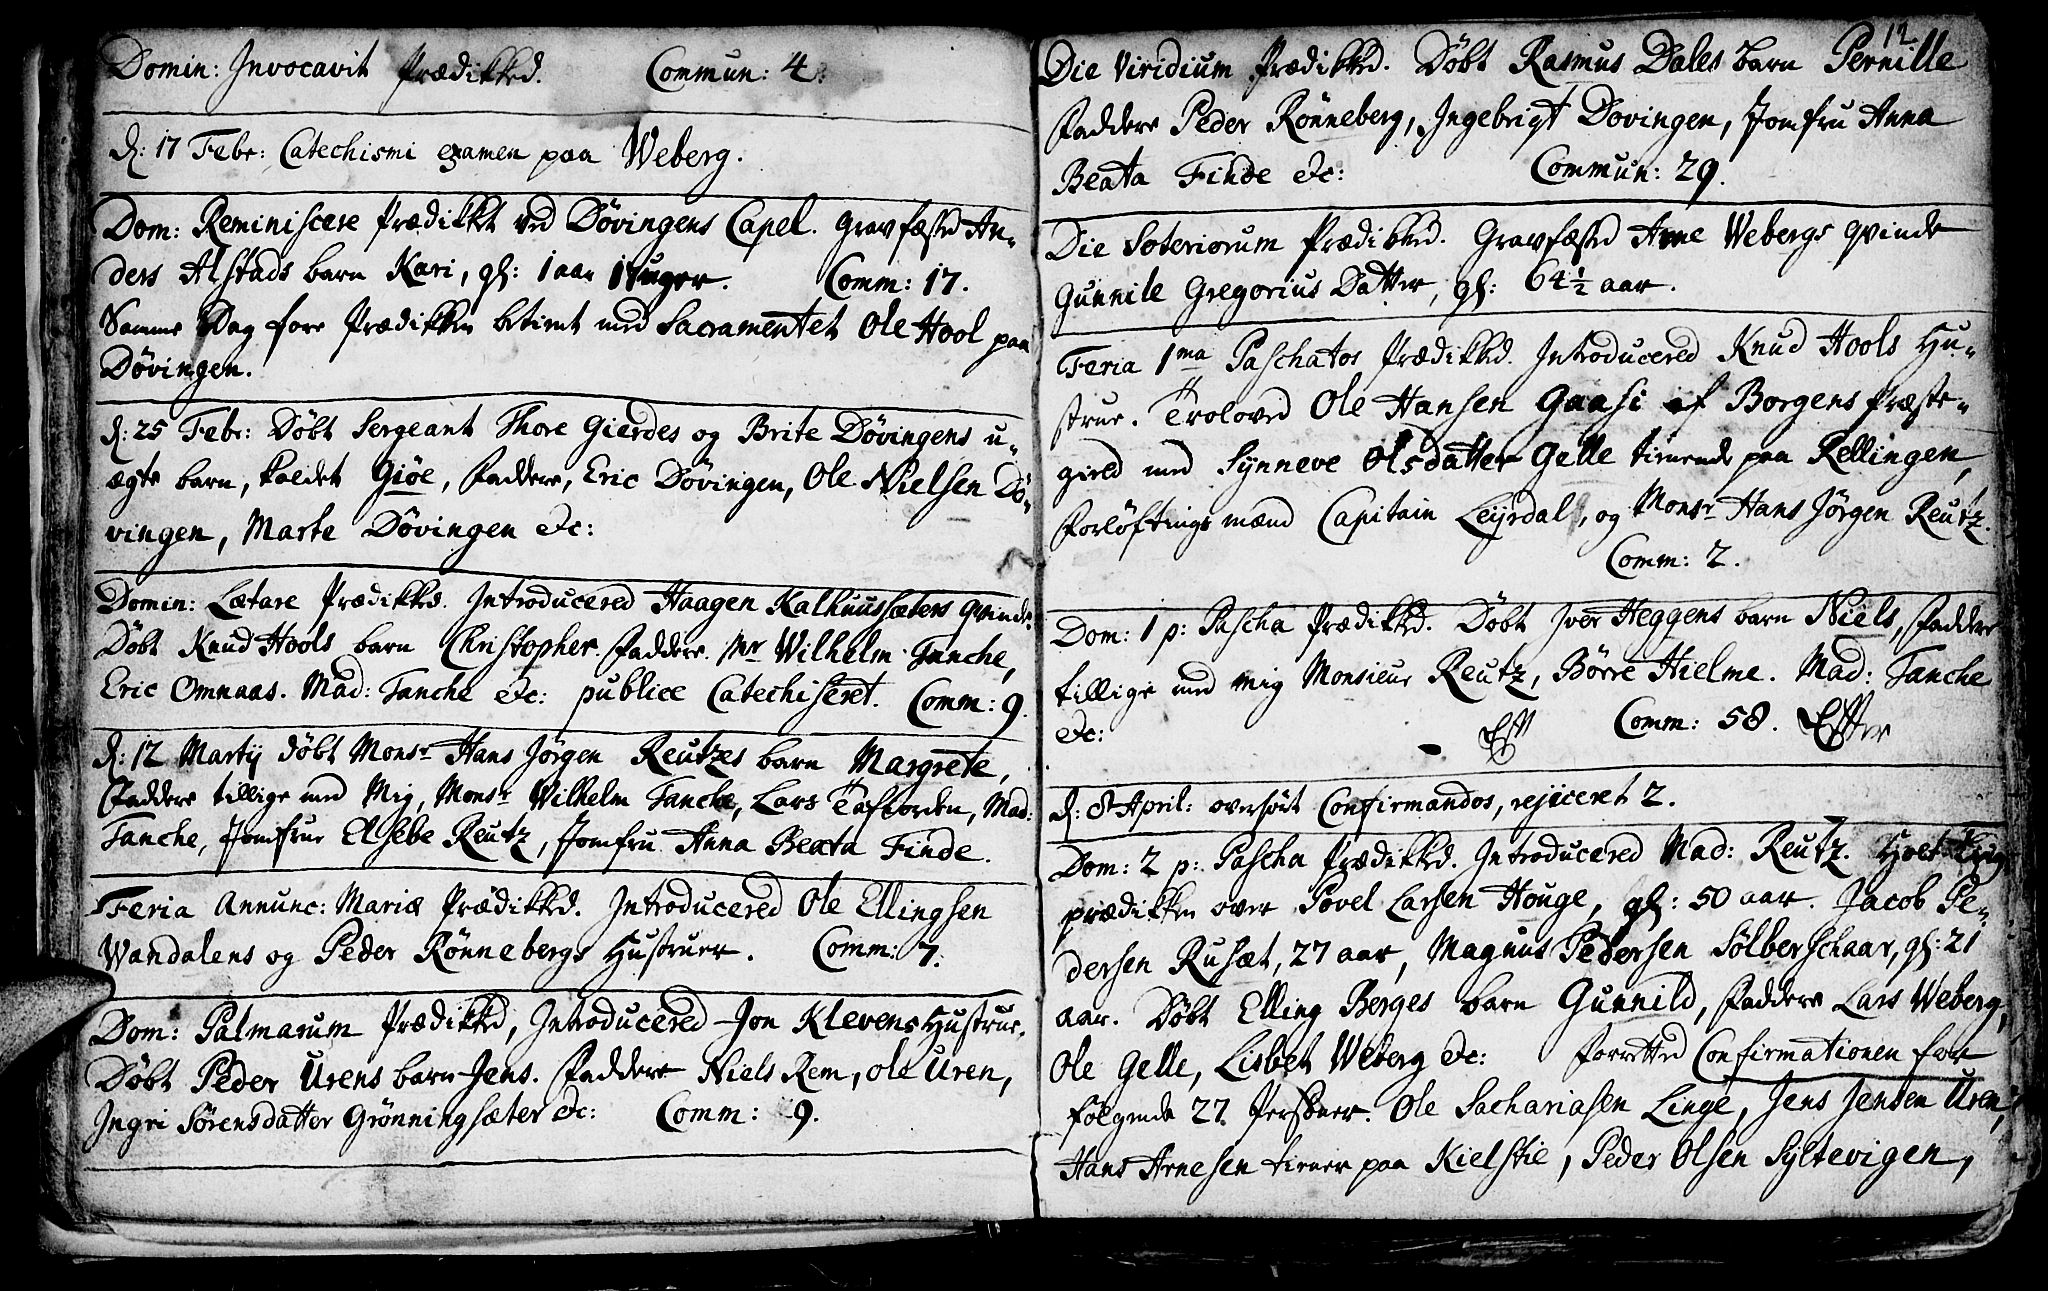 Domin: Invocavit Prædikked. Commun: 4.
d: 17 Febr: Catechismi examen paa Weberg.
Dom: Reminiscere Prædikket ved Døvingens Capel. Gravfæsted An-
ders Alstads barn Kari, gl: 1 aar 17 uger. Comm: 17.
Samme Dag fore Prædikken betient med Sacramentet Ole Hool paa
Døvingen.
d: 25 Febr: Døbt Sergeant Thore Gierdes og Brite Døvingens u-
ægte barn, kaldet Giøe, Faddere, Eric Døvingen, Ole Nielsen Dø-
vingen, Marte Døvingen etc:
Domin: Lætare Prædikked. Introducered Haagen Kalhuussæters qvinde.
Døbt Knud Hools barn Christopher. Faddere. Mr Wilhelm Tanche,
Eric Omnaas. Mad: Tanche etc: publice Catechiseret. Comm: 9.
d: 12 Martij døbt Monsr Hans Jørgen Reutzes barn Margrete,
Faddere tillige med Mig, Monsr Wilhelm Tanche, Lars Tafiorden, Mad:
Tanche, Jomfrue Elsebe Reutz, Jomfru Anna Beata Finde.
Feria Annunc: Mariæ Prædikked. Introducered Ole Ellingsen
Wandalens og Peder Rønnebergs Hustruer. Comm: 7.
Dom: Palmarum Prædikked, Introducered Jon Klevens Hustrue.
Døbt Peder Urens barn Jens. Faddere Niels Rem, Ole Uren,
Ingri Sørensdatter Grønningsæter etc: Comm: 9.
12
Die Viridium Prædikked. Døbt Rasmus Dales barn Pernille
Faddere Peder Rønneberg, Ingebrigt Dovingen, Jomfru Anna
Beata Finde etc: Commun: 29.
Die Soteriorum Prædikked. Gravfæsted Arne Webergs qvinde
Gunnild Gregorius Datter, gl: 64 1/2 aar.
Feria 1ma Paschatos Prædikked. Introducered Knud Hools Hu-
strue. Troloved Ole Hansen Gaasi af Borgens Præste-
gield med Synneve Olsdatter Gelle tienende paa Rellingen,
Forløftings mænd Capitain Leijrdal, og Monsr Hans Jørgen Reutz.
Comm: 2.
Dom: 1 p: Pascha Prædikked. Døbt Iver Heggens barn Niels, Faddere
tillige med mig Monsieur Reutz, Børre Hielme. Mad: Tanche
etc: Comm: 58. Efter
d: 8 April: overhørt Confirmandos, rejiceret 2.
Dom: 2 p: Pascha Prædikked. Introducered Mad: Reutz. Holt Liig
prædikken over Povel Larsen Houge, gl: 50 aar. Jacob Pe-
dersen Rusæt, 27 aar, Magnus Pedersen Sølberschaar, gl: 21
aar. Døbt Elling Berges barn Gunnild, Faddere Lars Weberg,
Ole Gelle, Lisbet Weberg etc: Forretted Confirmationen for
følgende 27 Personer. Ole Sachariasen Linge, Jens Jensen Uren,
Hans Arnesen tiener paa Kielstie, Peder Olsen Syltevigen,